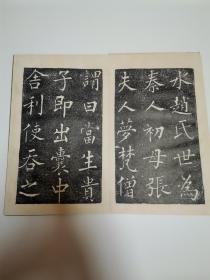 水趙氏世為
秦人初母張
夫人夢梵僧
謂曰當生貴
子即出囊中
舍利使吞之